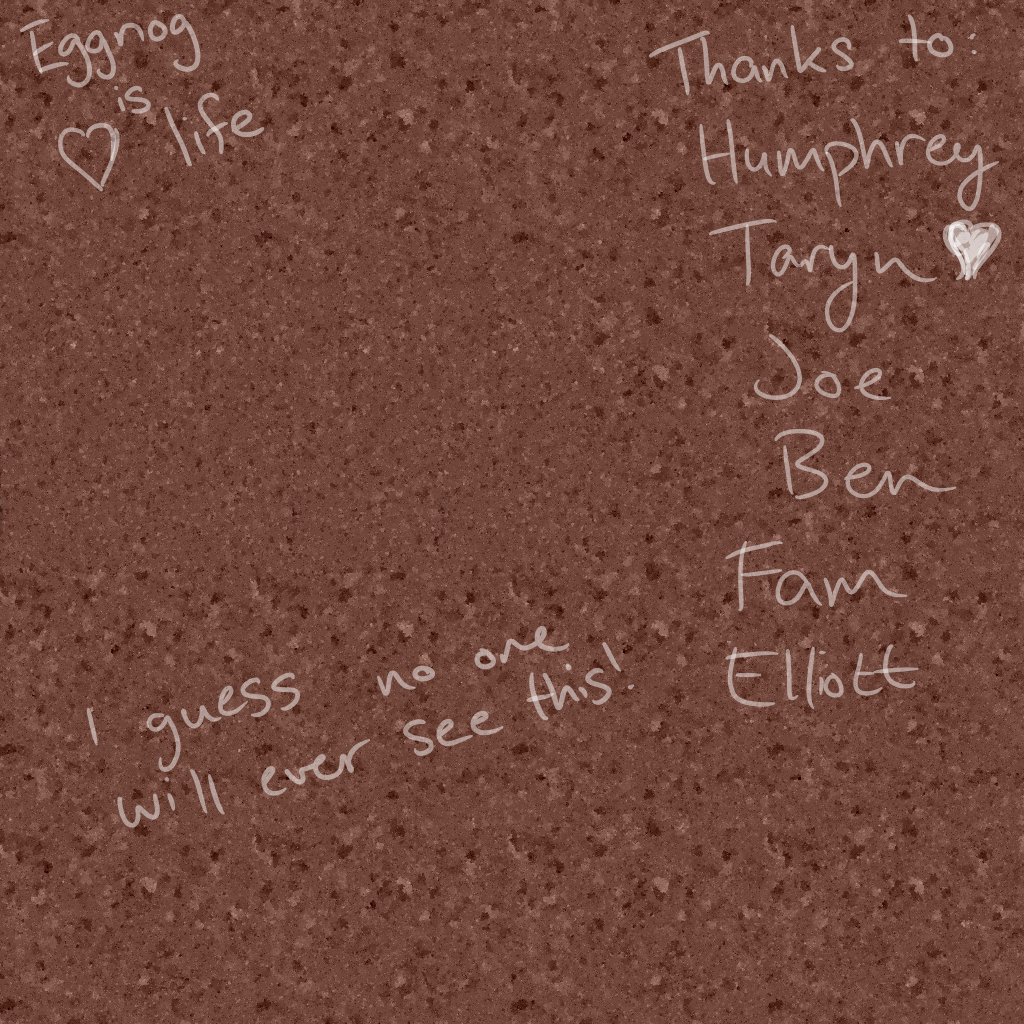 Eggnog
is
life
Thanks to:
Humphrey
Taryn
Joe
Ben
Fam
Elliott
I guess no one
will ever see this!